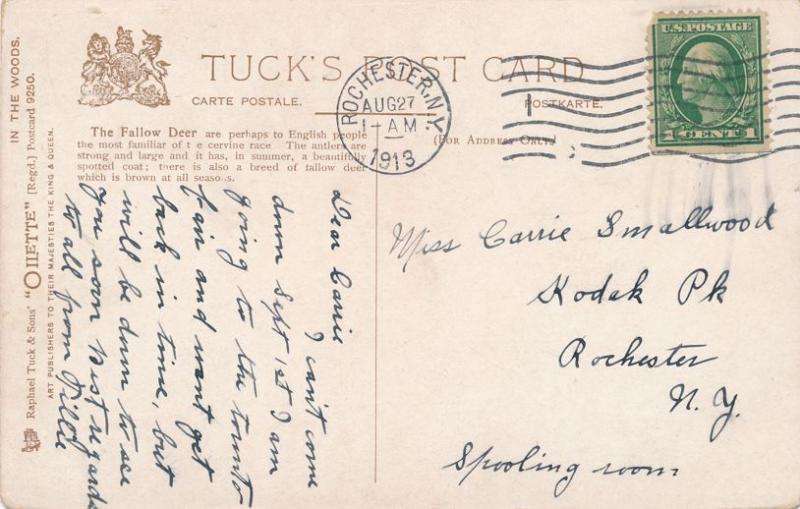 IN THE WOODS.
Raphael Tuck & Sons' "OILETTE" [Regd.] Postcard 9250.
ART PUBLISHERS TO THEIR MAJESTIES THE KING & QUEEN.
TUCK'S POST CARD
CARTE POSTALE.
POSTKARTE.
(FOR ADDRESS ONLY)
The Fallow Deer are perhaps to English people
the most familiar of t e cervine race The antlers are
strong and large and it has, in summer, a beautifully
spotted coat; there is also a breed of fallow deer
which is brown at all seasons.
ROCHESTER, N.Y.
AUG 27
1-AM
1913
1
U.S. POSTAGE
1 CENT 1
Dear Carrie
I can't come
down Sept 1st I am
going to the toronto
fair and wont get
back in time, but
will be down to see
you soon best regards
to all from Tillie
Miss Carrie Smallwood
Kodak Pk
Rochester
N.Y.
Spooling room